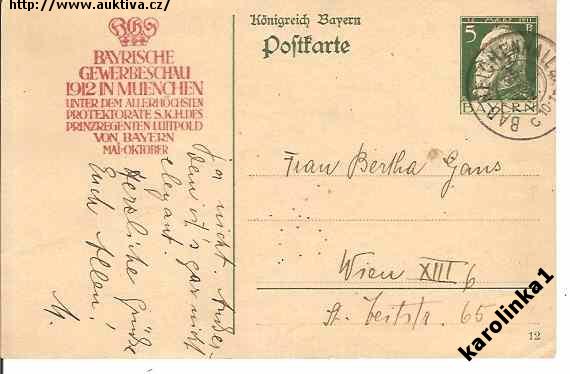 http://www.auktiva.cz/
BAYRISCHE
GEWERBESCHAU
1912 IN MUENCHEN
UNTER DEM ALLERHÖCHSTEN
PROTEKTORATE S.K.H.DES
PRINZREGENTEN LUITPOLD
VON BAYERN
MAI-OKTOBER
Königreich Bayern
Postkarte
12. MÄRZ 1911
5 P
BAYERN
BAD REICHENHALL
Frau Bertha Gans
Wien XIII/6
St. Veitstr. 65
12
ja nicht. Außer-
dem ist's gar nicht
elegant.
Herzliche Grüße
Euch Allen!
M.
karolinka1